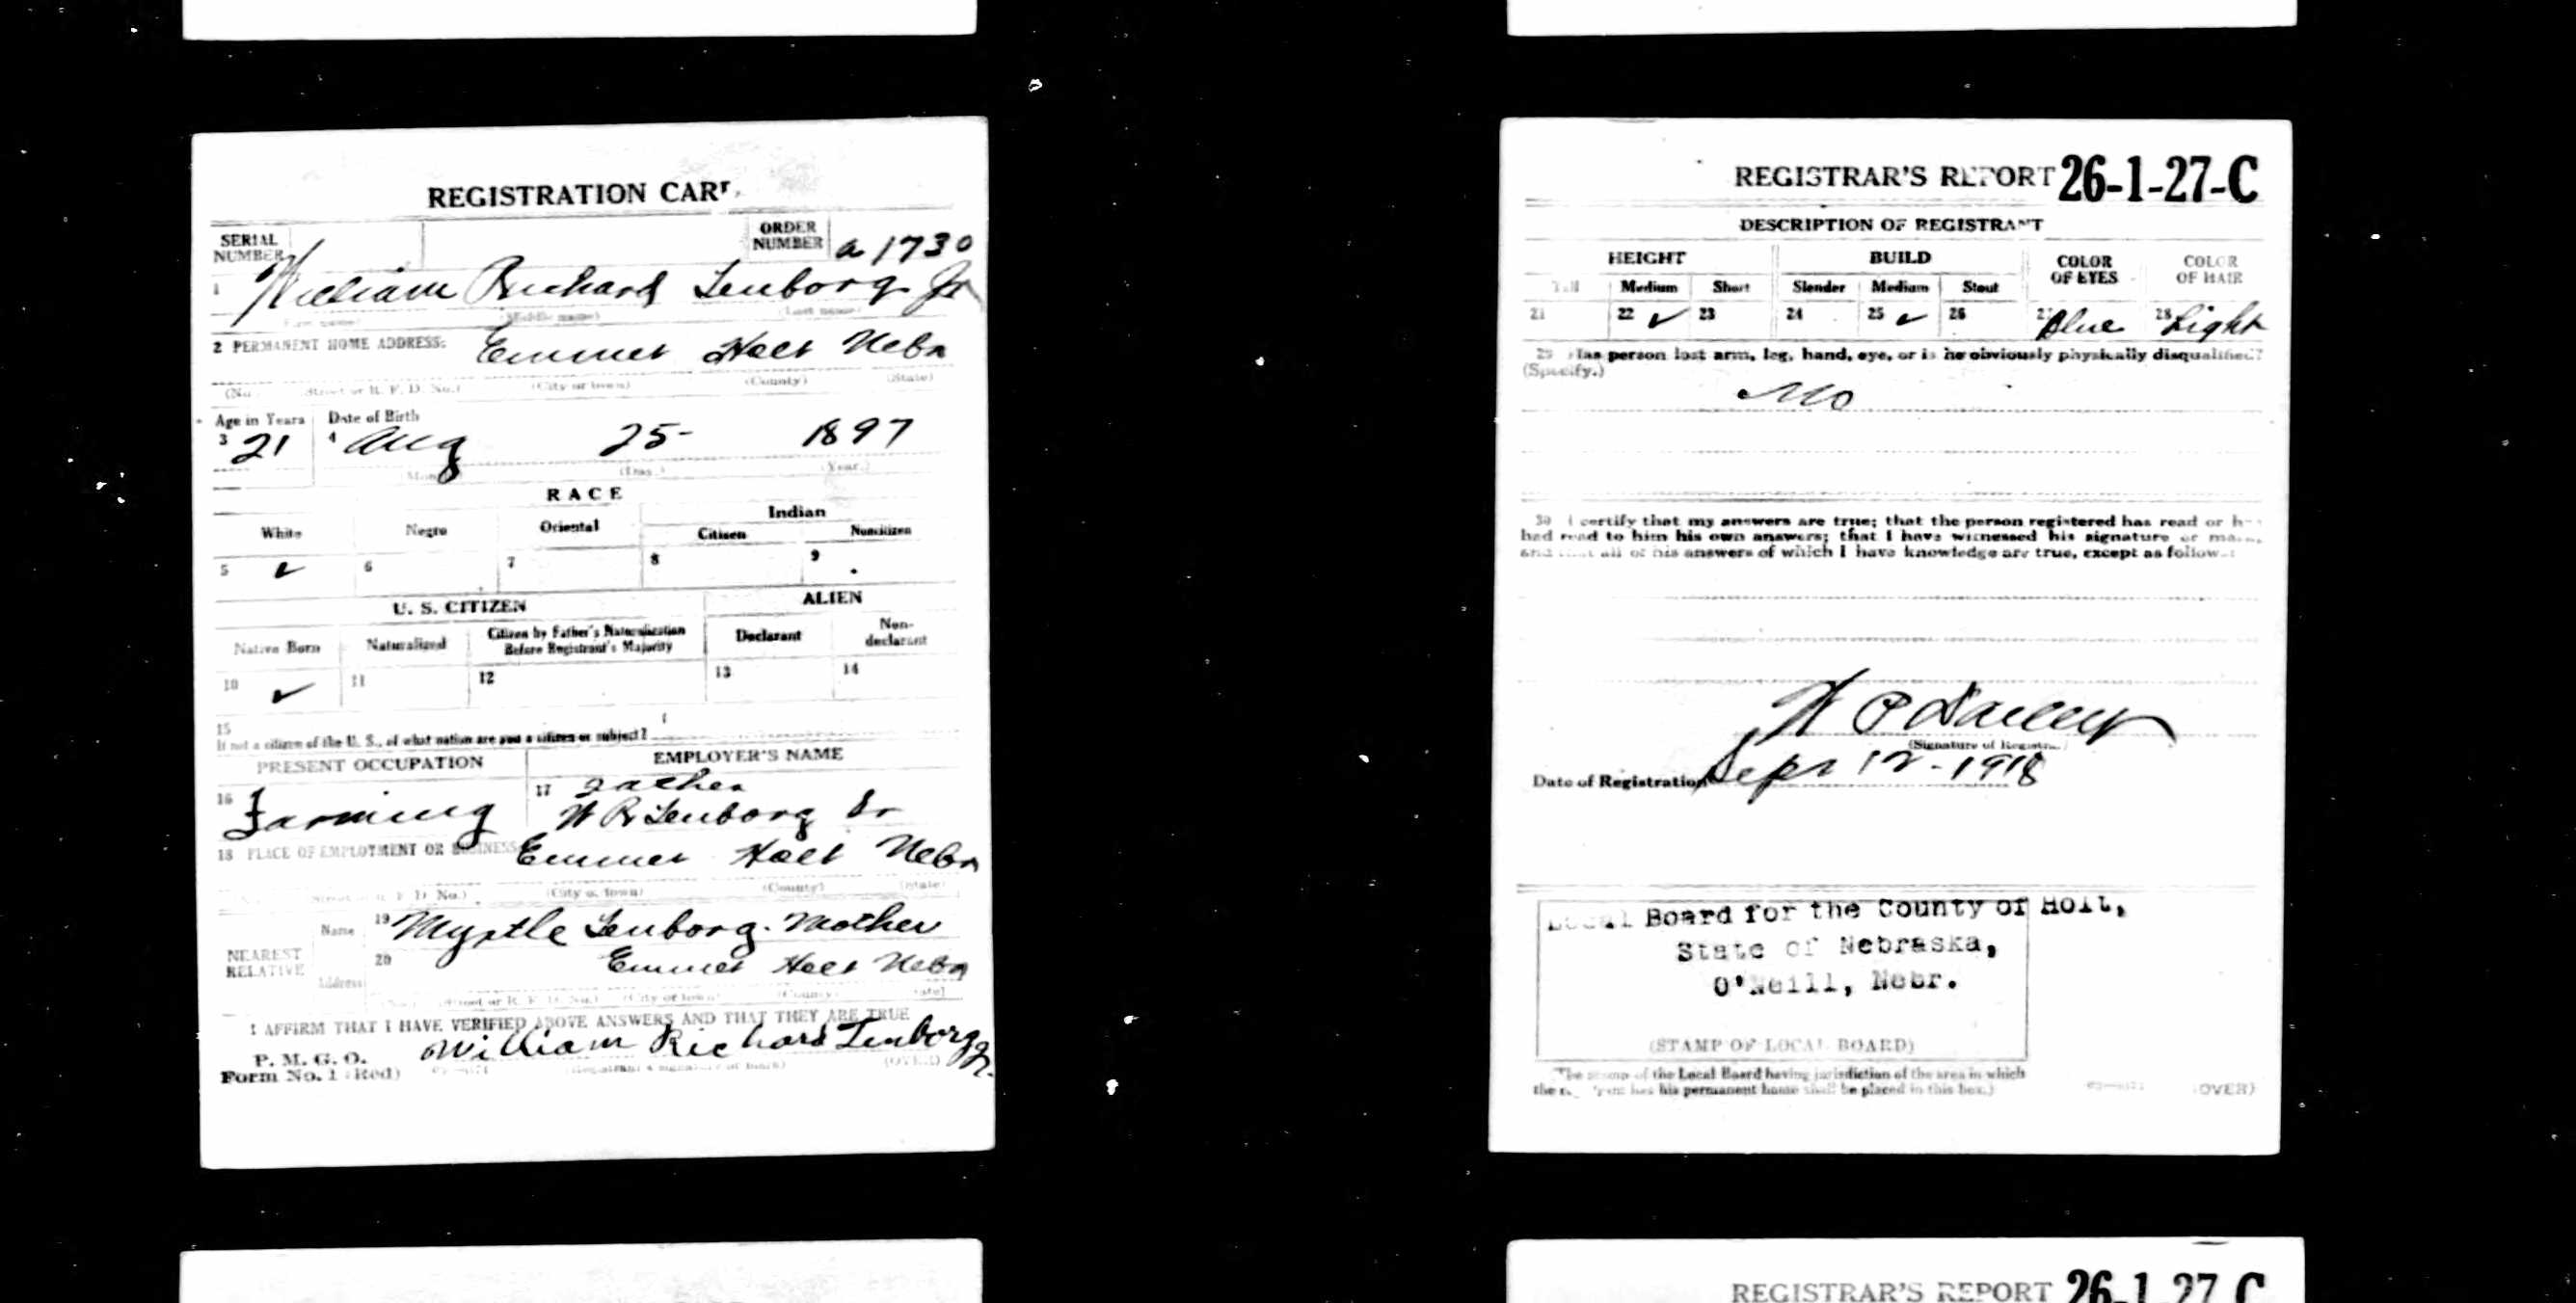 REGISTRATION CARD
SERIAL NUMBER
ORDER NUMBER a 1730
1 William Richard Tenborg Jr
(First name) (Middle name) (Last name)
2 PERMANENT HOME ADDRESS:
Emmet Holt Nebr
(No.) (Street or R. F. D. No.) (City or town) (County) (State)
Age in Years Date of Birth
3 21 4 Aug 25- 1897
(Month) (Day.) (Year.)
RACE
White Negro Oriental Indian
Citizen Noncitizen
5 ✓ 6 7 8 9
U. S. CITIZEN ALIEN
Native Born Naturalized Citizen by Father's Naturalization Before Registrant's Majority Declarant Non-declarant
10 ✓ 11 12 13 14
15
If not a citizen of the U. S., of what nation are you a citizen or subject?
PRESENT OCCUPATION EMPLOYER'S NAME
16 Farming 17 Father
W R Tenborg Sr
18 PLACE OF EMPLOYMENT OR BUSINESS:
Emmet Holt Nebr
R. F. D. No.) (City or town) (County) (State)
NEAREST RELATIVE
Name 19 Myrtle Tenborg. Mother
Address 20 Emmet Holt Nebr
(No.) (Street or R. F. D. No.) (City or town) (County) (State)
I AFFIRM THAT I HAVE VERIFIED ABOVE ANSWERS AND THAT THEY ARE TRUE
P. M. G. O.
Form No. 1 (Red)
William Richard Tenborg Jr.
(Registrant's signature or mark) (OVER)
REGISTRAR'S REPORT 26-1-27-C
DESCRIPTION OF REGISTRANT
HEIGHT BUILD COLOR OF EYES COLOR OF HAIR
Tall Medium Short Slender Medium Stout
21 22 ✓ 23 24 25 ✓ 26 27 Blue 28 Light
29 Has person lost arm, leg, hand, eye, or is he obviously physically disqualified?
(Specify.)
No
30 I certify that my answers are true; that the person registered has read or has
had read to him his own answers; that I have witnessed his signature or mark,
and that all of his answers of which I have knowledge are true, except as follows:
(Signature of Registrar)
Date of Registration Sept 12-1918
Local Board for the County of Holt,
State of Nebraska,
O'Neill, Nebr.
(STAMP OF LOCAL BOARD)
(The stamp of the Local Board having jurisdiction of the area in which
the registrant has his permanent home shall be placed in this box.)
(OVER)
REGISTRAR'S REPORT 26-1-27 C